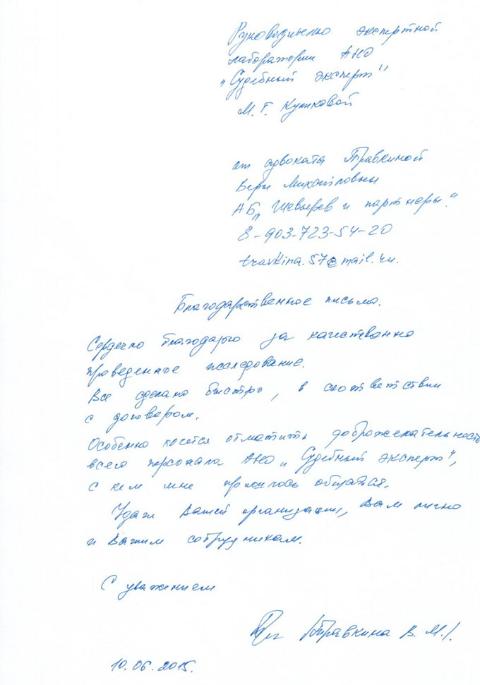 Руководителю экспертной
лаборатории АНО
„Судебный эксперт"
М. Г. Куликовой
от адвоката Травкиной
Веры Михайловны
АБ „Шевырев и партнеры."
8-903-723-54-20
travkina.57@mail.ru.
Благодарственное письмо.
Сердечно благодарю за качественно
проведенное исследование.
Все сделано быстро, в соответствии
с договором.
Особенно хочется отметить доброжелательность
всего персонала АНО „Судебный эксперт",
с кем мне пришлось общаться.
Удачи Вашей организации, Вам лично
и Вашим сотрудникам.
С уважением
/Травкина В. М./.
10.06.2015.